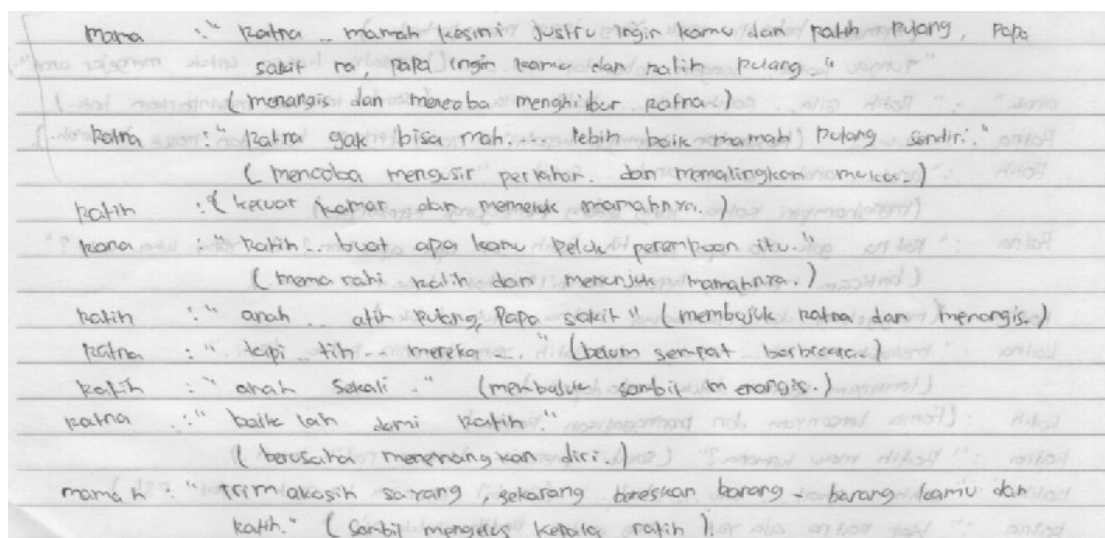 mama :" Ratna .. mamah kesini justru ingin kamu dan ratih pulang, Papa
sakit na, papa ingin kamu dan ratih pulang."
( menangis dan mencoba menghibur ratna. )
Ratna :" Ratna gak bisa mah.... lebih baik mamah pulang sendiri."
( mencoba mengusir perlahan. dan memalingkan muka. )
Ratih :( keluar kamar dan memeluk mamahnya. )
Ratna :" Ratih .. buat apa kamu peluk perempuan itu."
( mema rahi ratih dan menunjuk mamahnya. )
Ratih :" anah .. atih pulang, Papa sakit " ( membujuk ratna dan menangis. )
Ratna :" tapi .. tih .. mereka ... " ( belum sempat berbicara. )
Ratih :" anah sekali ." ( membujuk sambil menangis. )
ratna :" baik lah demi ratih."
( berusaha menenangkan diri. )
mamah :" trimakasih sayang, sekarang bereskan barang - barang kamu dan
ratih." ( sambil mengelus kepala ratih ).